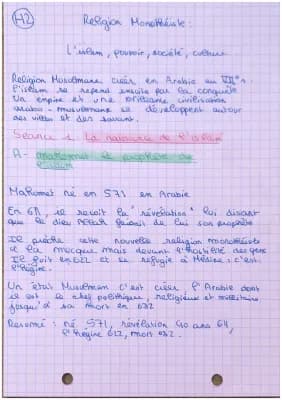 H2
Religion Monothéiste :
L'islam, pouvoir, société, culture
Religion Musulmane créer en Arabie au VIIe s.
l'islam se repend ensuite par la conquête
Un empire et une brillante civilisation
arabo-musulmane se développent autour
des villes et des savant.
Séance 1. La naissance de l'islam
A- Mahomet le prophète de
l'islam
Mahomet né en 571 en Arabie
En 611, il reçoit la "révélation" lui disant
que le dieu Allah faisait de lui son prophète
Il prêche cette nouvelle religion monothéiste
à la mecque mais devant l'hostilité des gens
Il fuit en 622 et se refugie à Médine : c'est
l'Hégire.
Un état Musulman c'est créer l'Arabie dont
il est le chef politique, religieuse et militaire
jusqu'à sa mort en 632
Resumé : né 571, révélation 40 ans 611,
l'Hégire 622, mort 632.